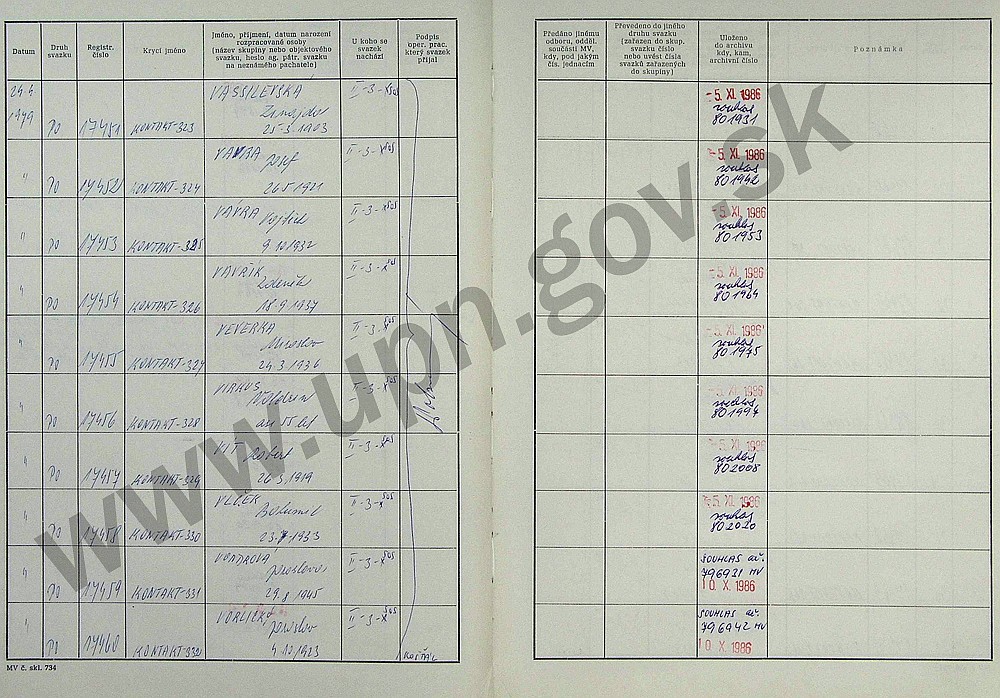 Datum
Druh svazku
Registr. číslo
Krycí jméno
Jméno, příjmení, datum narození
rozpracované osoby
(název skupiny nebo objektového
svazku, heslo ag. pátr. svazku
na neznámého pachatele)
U koho se
svazek
nachází
Podpis
oper. prac.
který svazek
přijal
Předáno jinému
odboru, odděl.
součásti MV,
kdy, pod jakým
čís. jednacím
Převedeno do jiného
druhu svazku
(zařazen do skup.
svazku číslo
nebo uvést čísla
svazků zařazených
do skupiny)
Uloženo
do archivu
kdy, kam,
archivní číslo
Poznámka
VASSILEVSKA
1979 PO 17451 KONTAKT-323
25-3-1903
II-3-
-5. XI. 1986
souhlas
801931
VAVRA
Josef
" PO 17452 KONTAKT-324
26.5.1921
II-3-
-5. XI. 1986
souhlas
801942
VAVRA
Vojtěch
" PO 17453 KONTAKT-325
9.10.1932
II-3-
-5. XI. 1986
souhlas
801953
VAVŘÍK
Zdeněk
" PO 17454 KONTAKT-326
18.9.1937
II-3-
-5. XI. 1986
souhlas
801964
VEVERKA
Miroslav
" PO 17455 KONTAKT-327
24.3.1936
II-3-
-5. XI. 1986
souhlas
801975
VIRKUS
" PO 17456 KONTAKT-328
asi 55 let
II-3-
-5. XI. 1986
souhlas
801994
VÍT
Robert
" PO 17457 KONTAKT-329
26.3.1919
II-3-
-5. XI. 1986
souhlas
802008
VLČEK
Bohumil
" PO 17458 KONTAKT-330
23.7.1933
II-3-
-5. XI. 1986
souhlas
802020
VONDROVÁ
Jaroslava
" PO 17459 KONTAKT-331
29.8.1945
II-3-
SOUHLAS
796931 MV
10 X. 1986
VORLÍČEK
Jaroslav
" PO 17460 KONTAKT-332
4.10.1923
II-3-
KOŠŤÁL
SOUHLAS
796942 MV
10 X. 1986
MV č. skl. 734
www.upn.gov.sk